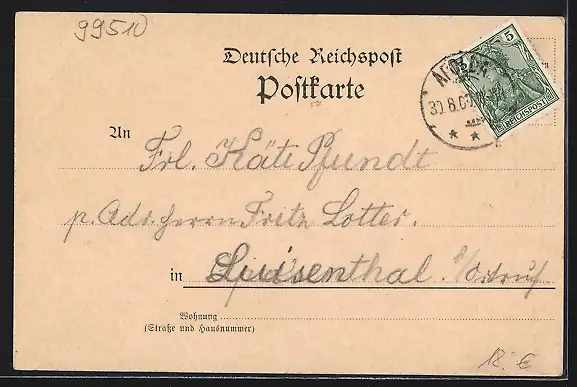 99510
Deutsche Reichspost
Postkarte
5
REICHSPOST
APOLDA
30.8.0
* *
An
Frl. Käte Pfundt
p. Adr. Herrn Fritz Lotter.
in Luisenthal.
Wohnung
(Straße und Hausnummer)
18.€